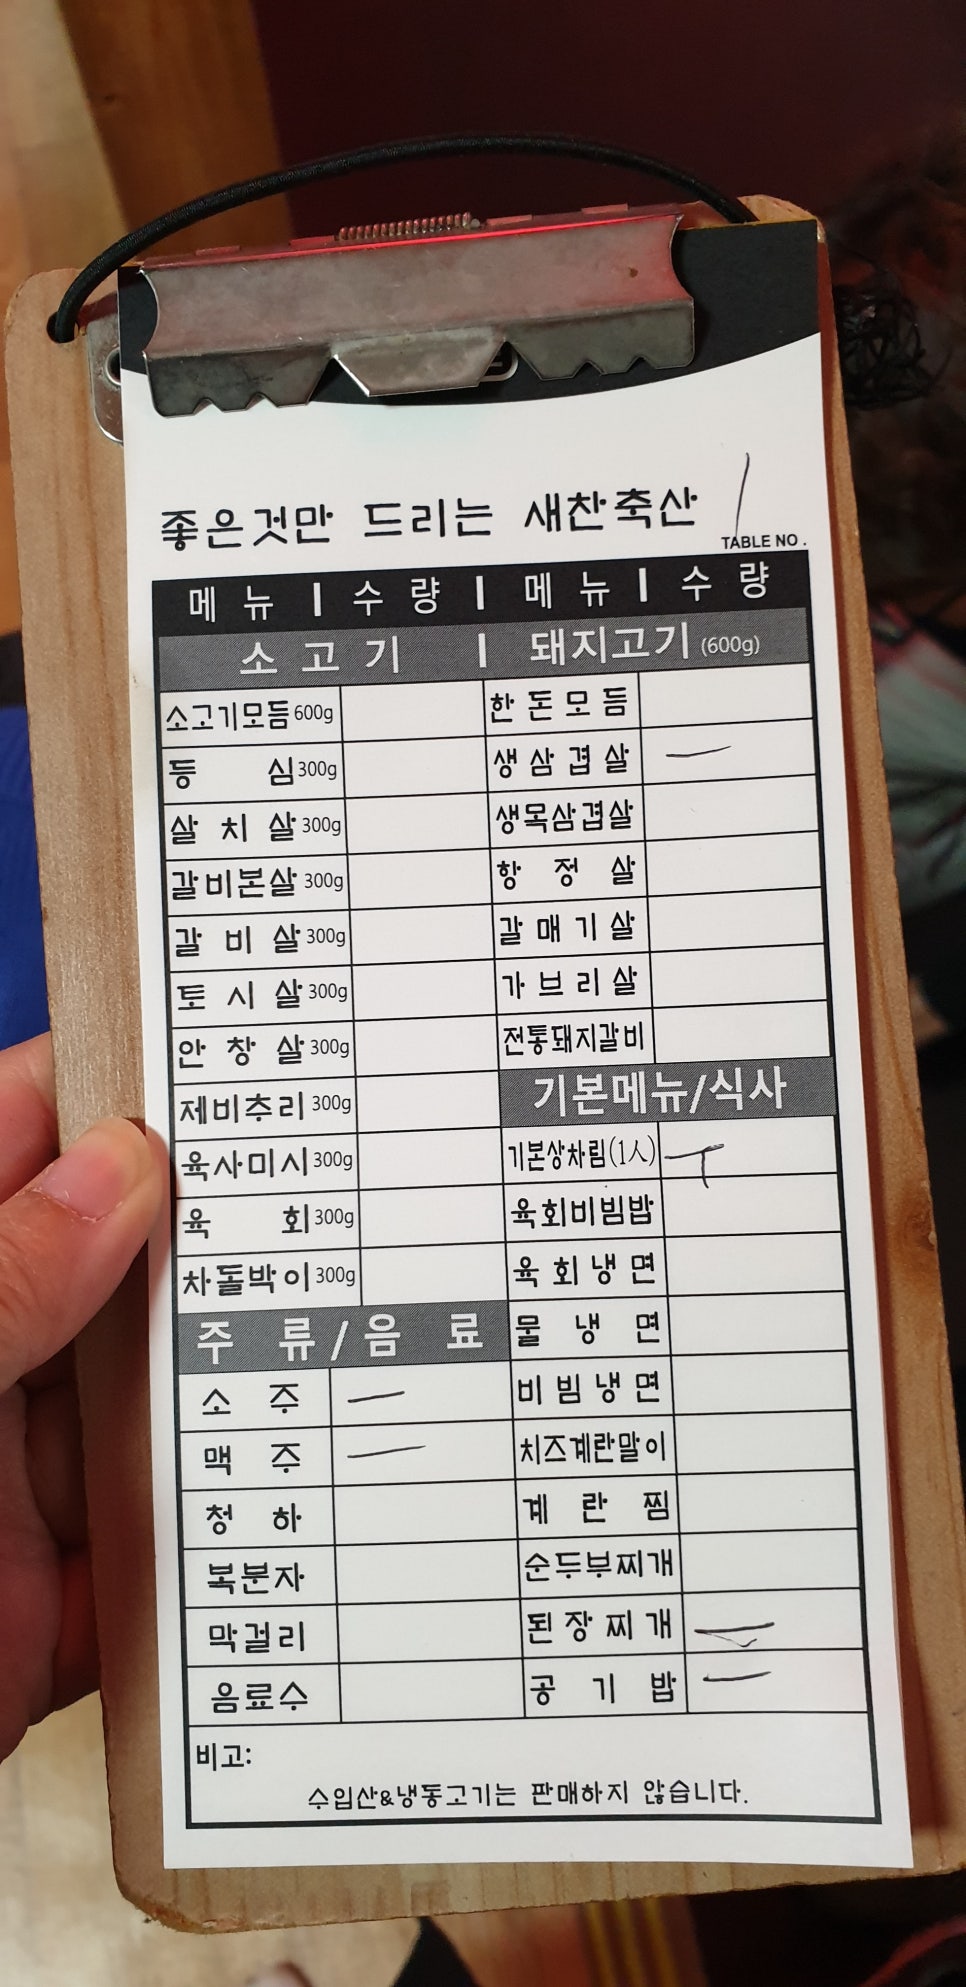 좋은것만 드리는 새찬축산
1
TABLE NO.
메뉴 | 수량 | 메뉴 | 수량
소고기 | 돼지고기 (600g)
소고기모듬 600g
등심 300g
살치살 300g
갈비본살 300g
갈비살 300g
토시살 300g
안창살 300g
제비추리 300g
육사미시 300g
육회 300g
차돌박이 300g
주류/음료
소주 一
맥주 一
청하
복분자
막걸리
음료수
한돈모듬
생삼겹살 一
생목삼겹살
항정살
갈매기살
가브리살
전통돼지갈비
기본메뉴/식사
기본상차림(1人) ㅜ
육회비빔밥
육회냉면
물냉면
비빔냉면
치즈계란말이
계란찜
순두부찌개
된장찌개 一
공기밥 一
비고:
수입산&냉동고기는 판매하지 않습니다.